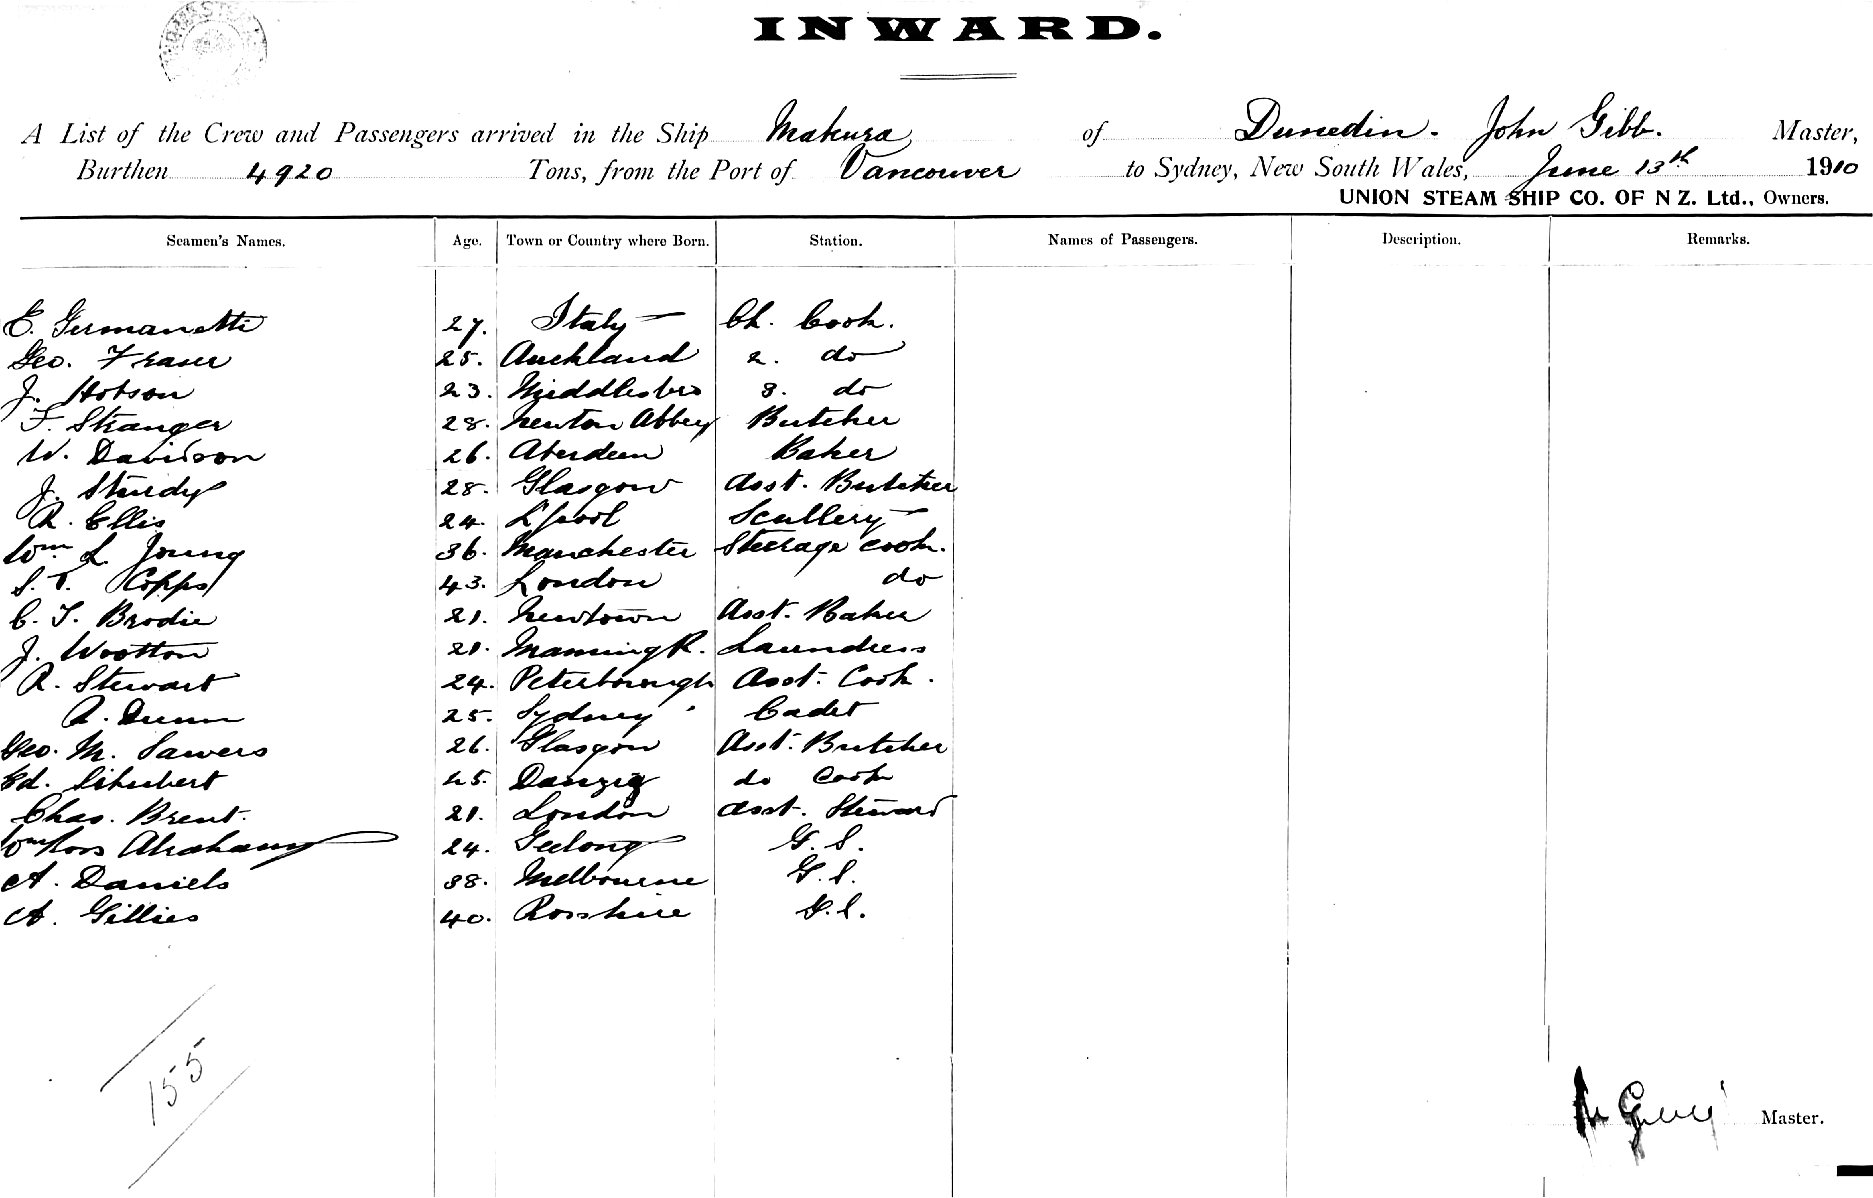 INWARD.
A List of the Crew and Passengers arrived in the Ship Makura of Dunedin. John Gibb. Master,
Burthen 4920 Tons, from the Port of Vancouver to Sydney, New South Wales, June 13th 1910
UNION STEAM SHIP CO. OF N Z. Ltd., Owners.
Seamen's Names. Age. Town or Country where Born. Station. Names of Passengers. Description. Remarks.
E. Germanetti 27. Italy Ch. Cook.
Geo. Fraser 25. Auckland 2. do
J. Hobson 23. Middlesbro 3. do
F. Stranger 28. Newton Abbey Butcher
W. Davidson 26. Aberdeen Baker
J. Sturdy 28. Glasgow Asst. Butcher
R. Ellis 24. L'pool Scullery
Wm L. Young 36. Manchester Steerage Cook.
S. T. Copps 43. London do
C. T. Brodie 21. Newtown Asst. Baker
J. Wootton 21. Manning R. Laundress
R. Stewart 24. Peterborough Asst. Cook.
R. Dunn 25. Sydney Cadet
Geo. M. Sawers 26. Glasgow Asst. Butcher
Ed. Schubert 45. Danzig do Cook
Chas. Brent. 21. London Asst. Steward
Wm Ross Abrahams 24. Geelong G. S.
A. Daniels 38. Melbourne G. S.
A. Gillies 40. Rosshire G. S.
155
Master.